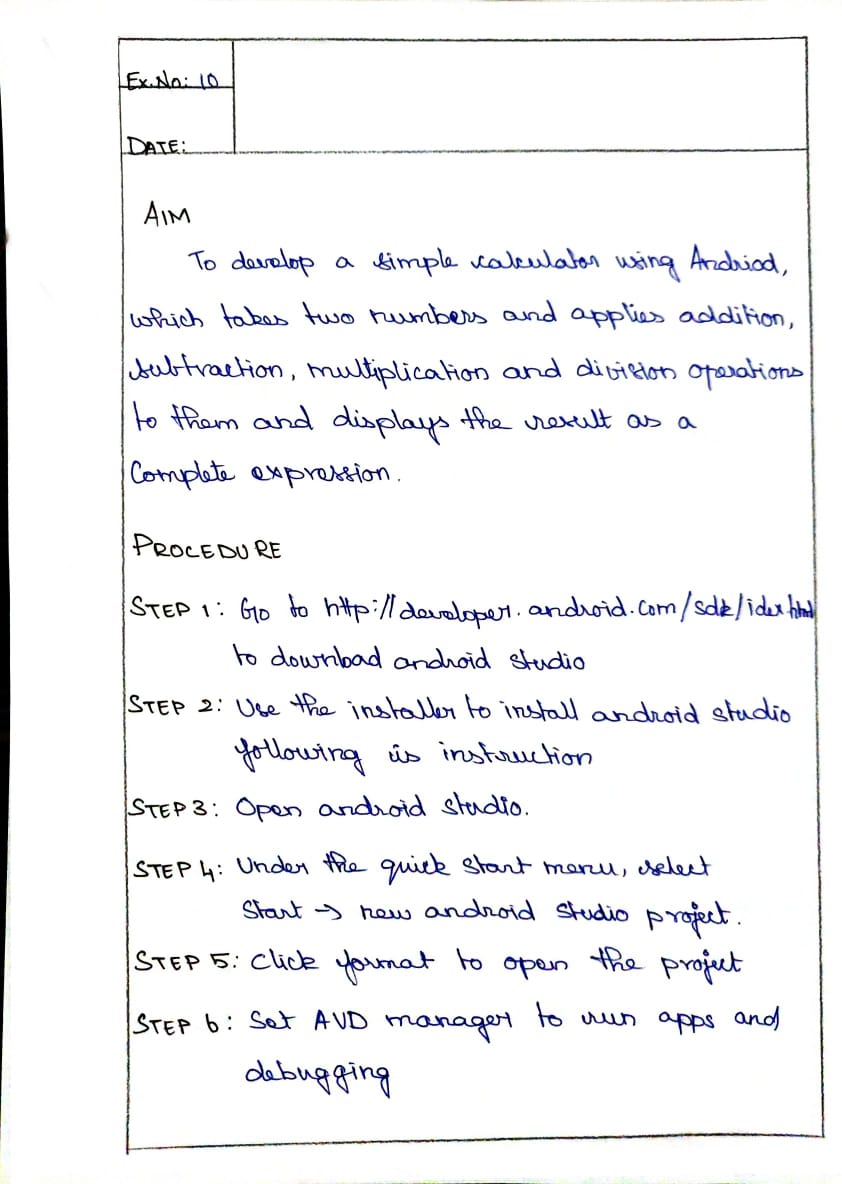 Ex.No: 10
DATE:
AIM
To develop a simple calculator using Andriod,
which takes two numbers and applies addition,
subtraction, multiplication and division operations
to them and displays the result as a
Complete expression.
PROCEDURE
STEP 1: Go to http://developer.android.com/sdk/idex.html
to download android studio
STEP 2: Use the installer to install android studio
following is instruction
STEP 3: Open android studio.
STEP 4: Under the quick start menu, select
Start → new android studio project.
STEP 5: Click format to open the project
STEP 6: Set AVD manager to run apps and
debugging